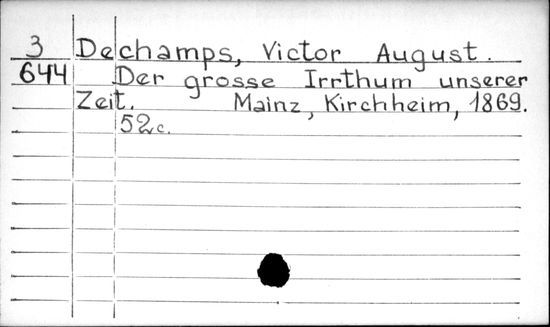 3 Dechamps, Victor August.
644 Der grosse Irrthum unserer
Zeit. Mainz, Kirchheim, 1869.
52c.